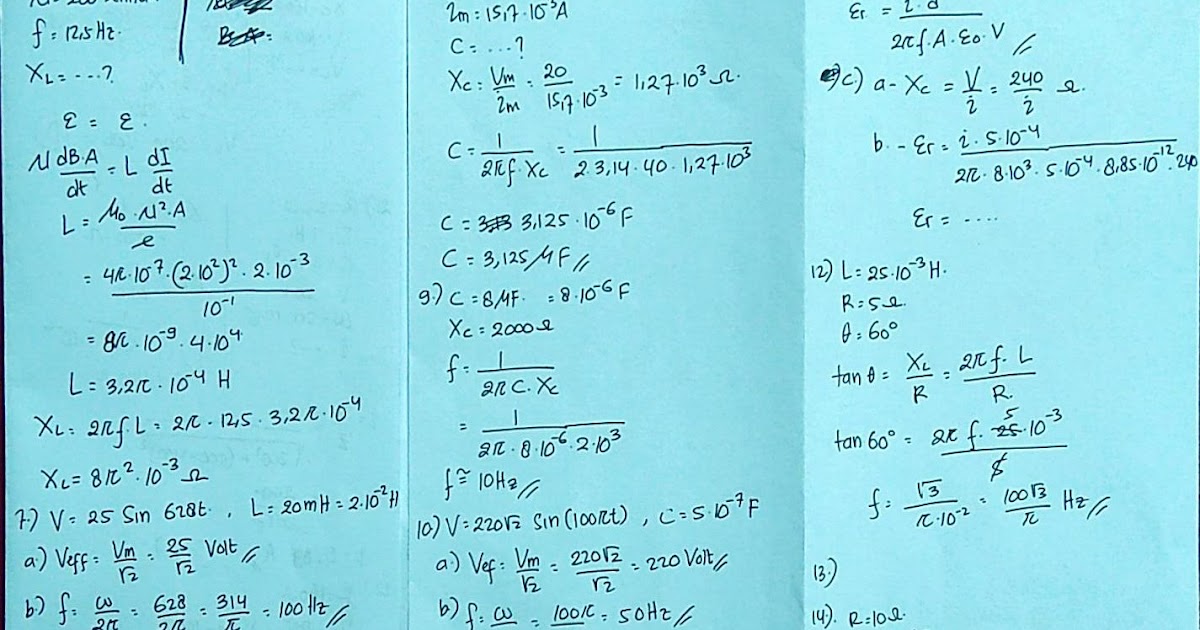 f = 12,5 Hz.
XL = ...?
ε = ε.
N dB.A/dt = L dI/dt
L = μ0 . N². A / ℓ
= 4π.10⁻⁷.(2.10²)². 2.10⁻³ / 10⁻¹
= 8π . 10⁻⁹. 4.10⁴
L = 3,2π . 10⁻⁴ H
XL = 2πf. L = 2π . 12,5 . 3,2π . 10⁻⁴
XL = 8π² . 10⁻³ Ω
7.) V = 25 Sin 628t. , L = 20mH = 2.10⁻² H
a.) Veff = Vm/√2 = 25/√2 Volt //
b.) f = ω/2π = 628/2π = 314/π = 100 Hz //
im = 15,7 . 10⁻³ A
C = ...?
Xc = Vm/im = 20/15,7.10⁻³ = 1,27.10³ Ω.
C = 1/2πf. Xc = 1/2.3,14.40.1,27.10³
C = 3,125.10⁻⁶ F
C = 3,125 μF //
9.) C = 8 μF. = 8.10⁻⁶ F
Xc = 2000 Ω
f = 1/2π C. Xc
= 1/2π.8.10⁻⁶.2.10³
f ≅ 10Hz //
10.) V = 220√2 Sin (100πt) , C = 5.10⁻⁷ F
a.) Vef = Vm/√2 = 220√2/√2 = 220 Volt //
b) f = ω = 100π = 50 Hz //
Er = i.d / 2πf.A.εo.V //
c) a - Xc = V/i = 240/i Ω.
b. - Er = i . 5.10⁻⁴ / 2π . 8.10³ . 5.10⁻⁴. 8,85.10⁻¹². 240
Er = ....
12) L = 25.10⁻³ H.
R = 5 Ω.
θ = 60°
tan θ = XL/R = 2πf. L/R.
tan 60° = 2π f. 25 5 .10⁻³ / 5
f = √3/π.10⁻² = 100√3/π Hz //
13.)
14). R = 10 Ω.